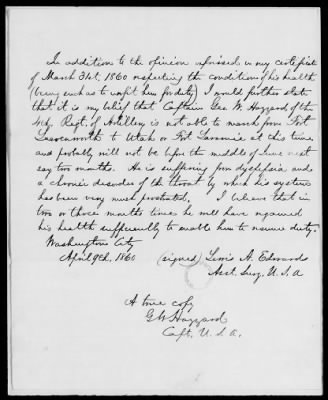 In addition to the opinion expressed in my certificate
of March 31st, 1860 respecting the condition of his health
(being such as to unfit him for duty) I would further state
that it is my belief that Captain Geo. W. Hazzard of the
4th Regt. of Artillery is not able to march from Fort
Leavenworth to Utah or Fort Laramie at this time,
and probably will not be before the middle of June next
say two months. He is suffering from dyspepsia and
a chronic disorder of the throat by which his system
has been very much prostrated. I believe that in
two or three months time he will have regained
his health sufficiently to enable him to resume duty.
Washington City
April 9th, 1860 (signed) Lewis A. Edwards
Asst. Surg. U.S.A
A true copy
GW Hazzard
Capt. U.S.A.